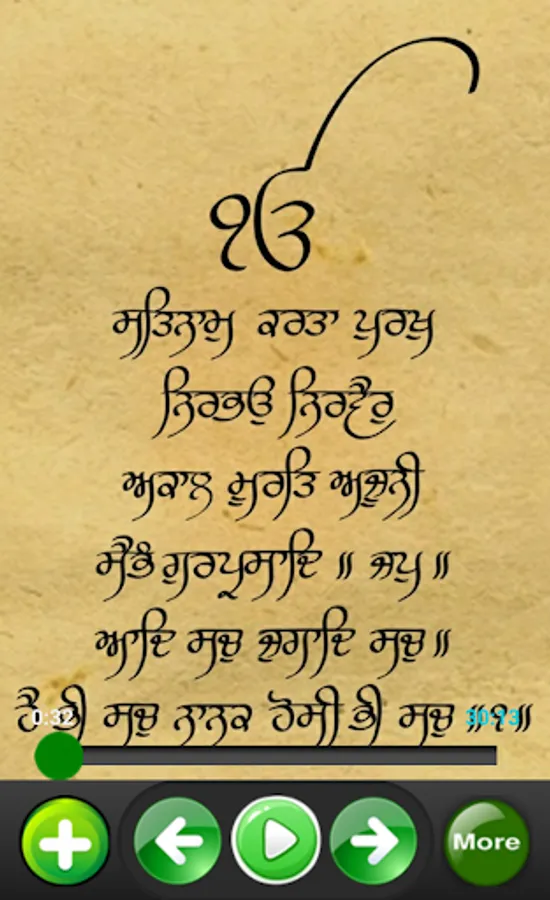 ੴ
ਸਤਿਨਾਮੁ ਕਰਤਾ ਪੁਰਖੁ
ਨਿਰਭਉ ਨਿਰਵੈਰੁ
ਅਕਾਲ ਮੂਰਤਿ ਅਜੂਨੀ
ਸੈਭੰ ਗੁਰਪ੍ਰਸਾਦਿ ॥ ਜਪੁ ॥
ਆਦਿ ਸਚੁ ਜੁਗਾਦਿ ਸਚੁ ॥
ਹੈ ਭੀ ਸਚੁ ਨਾਨਕ ਹੋਸੀ ਭੀ ਸਚੁ ॥੧॥
0:32 30:13
More